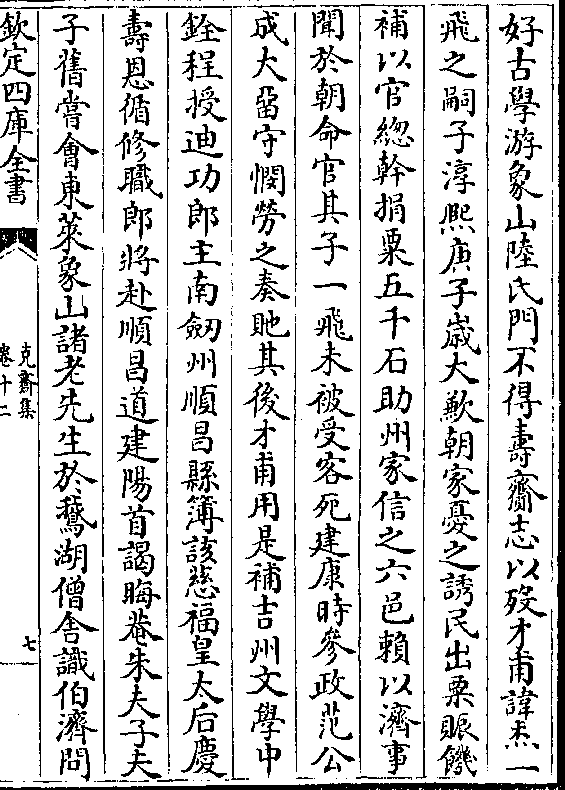 好古學游象山陸氏門不得壽齎志以歿才甫諱杰一
飛之嗣子淳熙庚子歲大歉朝家憂之誘民出粟賑饑
補以官總幹捐粟五千石助州家信之六邑賴以濟事
聞於朝命官其子一飛未被受客死建康時參政范公
成大留守憫勞之奏貤其後才甫用是補吉州文學中
銓程授迪功郎主南劒州順昌縣簿該慈福皇太后慶
壽恩循修職郎將赴順昌道建陽首謁晦菴朱夫子夫
子舊嘗會東萊象山諸老先生於鵞湖僧舎識伯濟問
欽定四庫全書
克齋集
卷十二
七